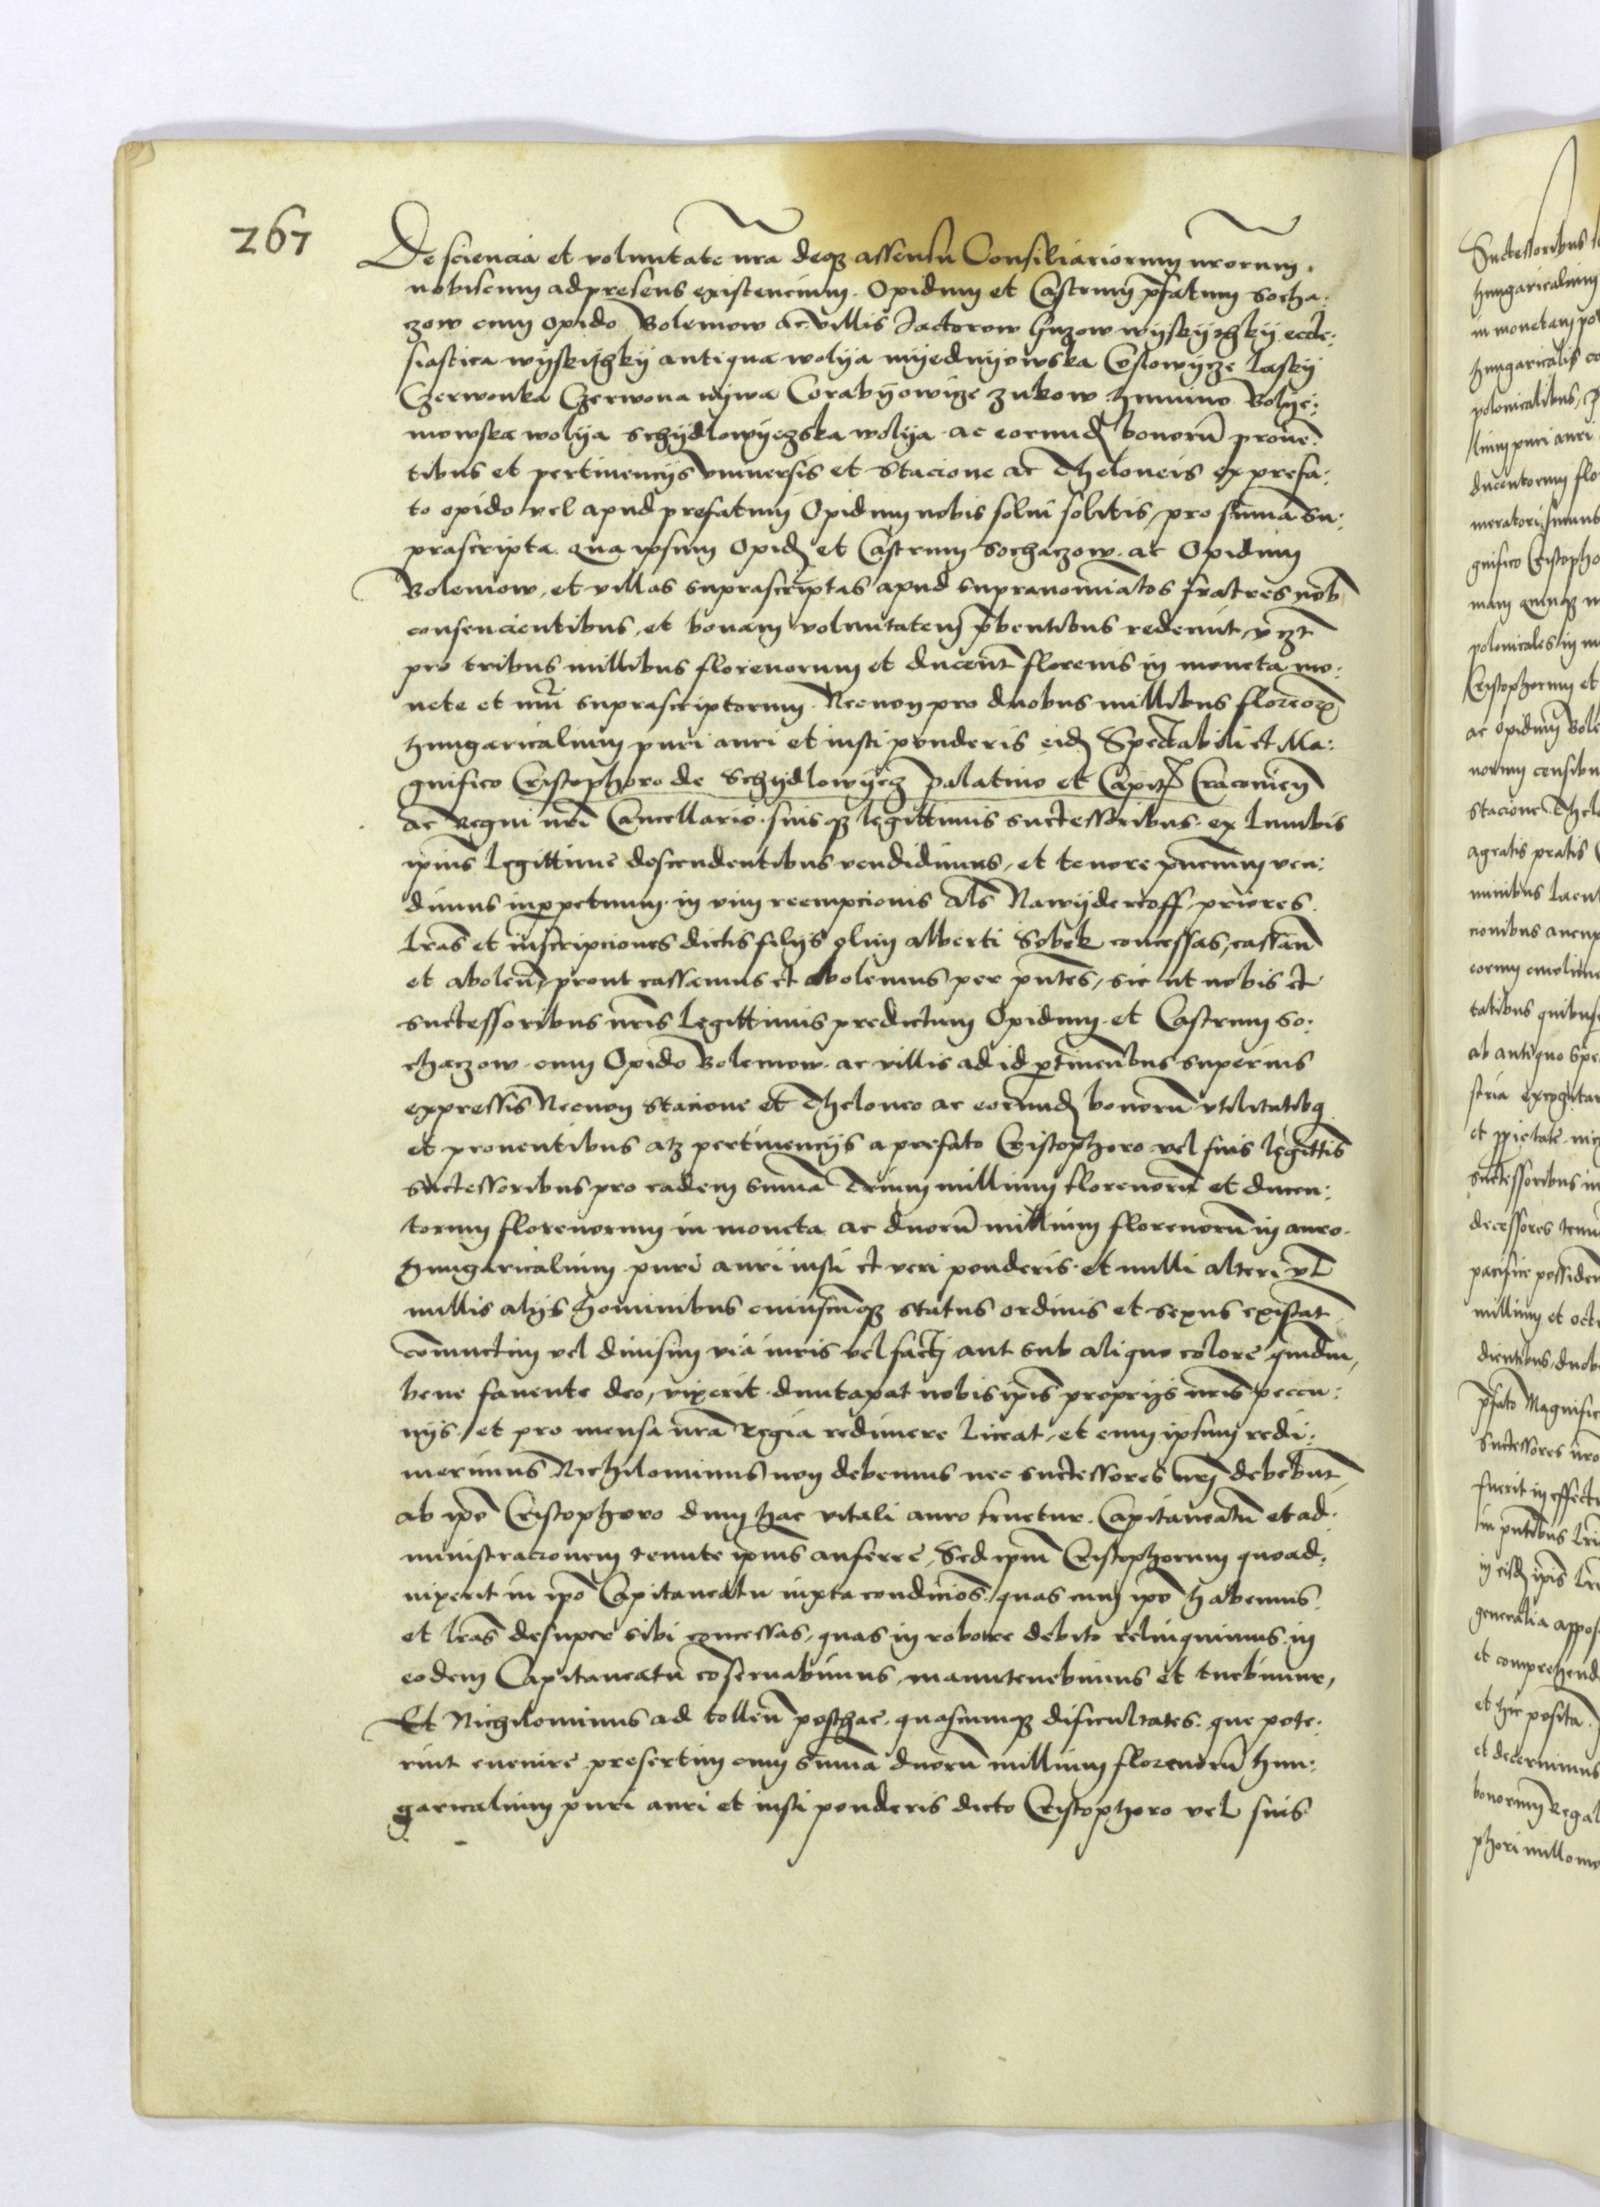 267
De sciencia et voluntate nrã deqz assensu Consiliariorum nrorum
nobiscum ad presens existencium. Opidum et Castrum pfatum Socha:
czow cum opido Bolemow ac villis Jactorow Guzow wyskythky eccle:
siastica wyskythky antiqua wolya myednyewska Coslowycze lasky
Czerwonka Czerwona nywa Corabyowicze zukow humino Bolye:
mowska wolya Schydlowyeczska wolya ac eorund bonorũ proven:
tibus et pertinencijs universis et Stacione ac Theloneis ex prefa:
to opido vel apud prefatum Opidum nobis solui solitis, pro summa su:
prascripta qua ipsum Opid et Castrum Sochaczow. ac Opidum
Bolemow, et villas suprascriptas apud supranominatos fratres nob
consencientibus, et bonam voluntatem pbentibus redemit, vizt
pro tribus millibus florenorum et ducent florenis in moneta mo:
nete et nũi suprascriptorum. Necnon pro duobus millibus floreor
hungaricalium puri auri et iusti ponderis eid Spectabili et Ma:
gnifico Cristophoro de Schydlowyecz palatino et Capit Cracovien
ac Regni nri Cancellario. suisqz legittimis successoribus ex lumbis
ipius legittime descendentibus vendidimus, et tenore pncium ven:
dimus inperpetuum in vim reempcionis Als Nawyderkoff, priores
lras et inscripciones dictis filijs olim alberti Sobek concessas, cassan
et abolen, prout cassamus et abolemus per pntes, sic ut nobis et
successoribus nris legittimis predictum Opidum et Castrum so:
chaczow cum Opido Bolemow ac villis ad id ptinentibus superius
expressis Necnon stacione et Theloneo ac eorund bonorũ utilitatibq
et proventibus atqz pertinencijs a prefato Cristophoro vel suis legittis
successoribus pro eadem suma Trium millium florenorũ et ducen:
torum florenorum in moneta ac duorũ millium florenorũ in auro
hungaricalium puri auri iusti et veri ponderis et nulli alteri vl
nullis alijs hominibus cuiuscunqz status ordinis et sexus existat
coniunctim vel divisim via iuris vel facti aut sub aliquo colore quidm,
bene favente deo, vixerit dumtaxat nobis ipis proprijs nris peccu:
nijs et pro mensa nra Regia redimere liceat, et cum ipsum redi:
merimus Nichilominus non debemus nec successores nri debebunt
ab ipo Cristophoro dum hac vitali auro fruetur Capitaneatũ et ad
ministracionem tenute ipius auferre, Sed ipm Cristophorum quoad
vixerit in ipo Capitaneatu iuxta condicios, quas cum ipo habemus
et lras desuper sibi concessas, quas in robore debito relinquimus in
eodem Capitaneatu coservabimus, manutenebimus et tuebimur,
Et Nichilominus ad tollen posthac. quascunqz dificultates. que pote:
rint evenire presertim cum suma duorũ millium florenorũ hun:
garicalium puri auri et iusti ponderis dicto Cristophoro vel suis
Successoribus
hungaricalium
in monetam
hungaricalis
polonicalibus,
lium puri auri
ducentorum flo
gnifico Cristopho
polonicales in m
Cristophorum et
ac Opidum Bole
Stacione Thelo
agratis pratis
tatibus quibus
ab antiquo spe
successoribus in
pacifice possiden
millium et octi
pfato Magnific
Successores nro
fuerit in effectu
generalia appos
et comprehend
et hic posita
et decernimus
bonorum Regal
phori nullomo